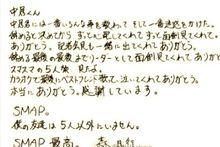 中居くん
中居君には一番いろんな事を教わって そして一番迷惑をかけた。
辞めると決めてから ずっと配してくれて ずっと面倒見てくれて。
ありがとう。記者会見も一緒に出てくれてありがとう。
辞める最後の最後までリーダーとして面倒見てくれてありがとう。
スマスマの5人旅 見たよ。
カラオケで最後にベストフレンド歌って、泣いてくれてありがとう
本当にありがとう。感謝しています。
SMAP。
僕の友達は5人以外にいません。
SMAP 最高。 森且行